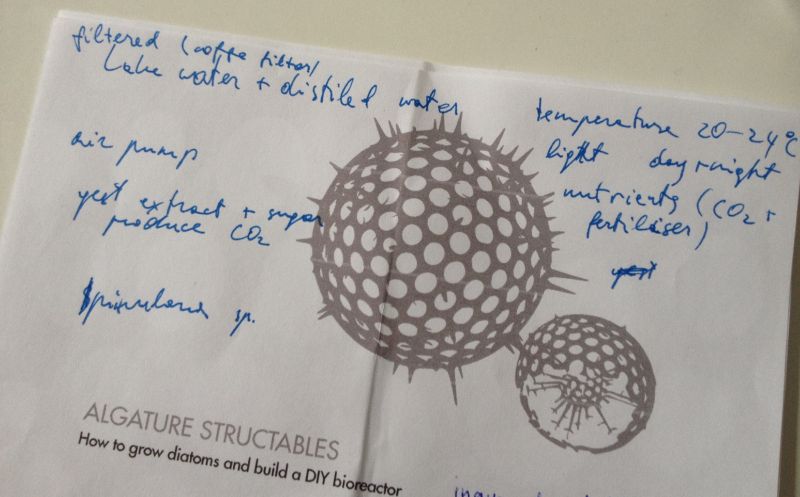 filtered (coffe filter)
Lake water + distiled water
air pump
yest extract + sugar
produce CO2
temperature 20-24°C
light day+night
nutrients (CO2 +
fertiliser)
yest
sp.
ALGATURE STRUCTABLES
How to grow diatoms and build a DIY bioreactor